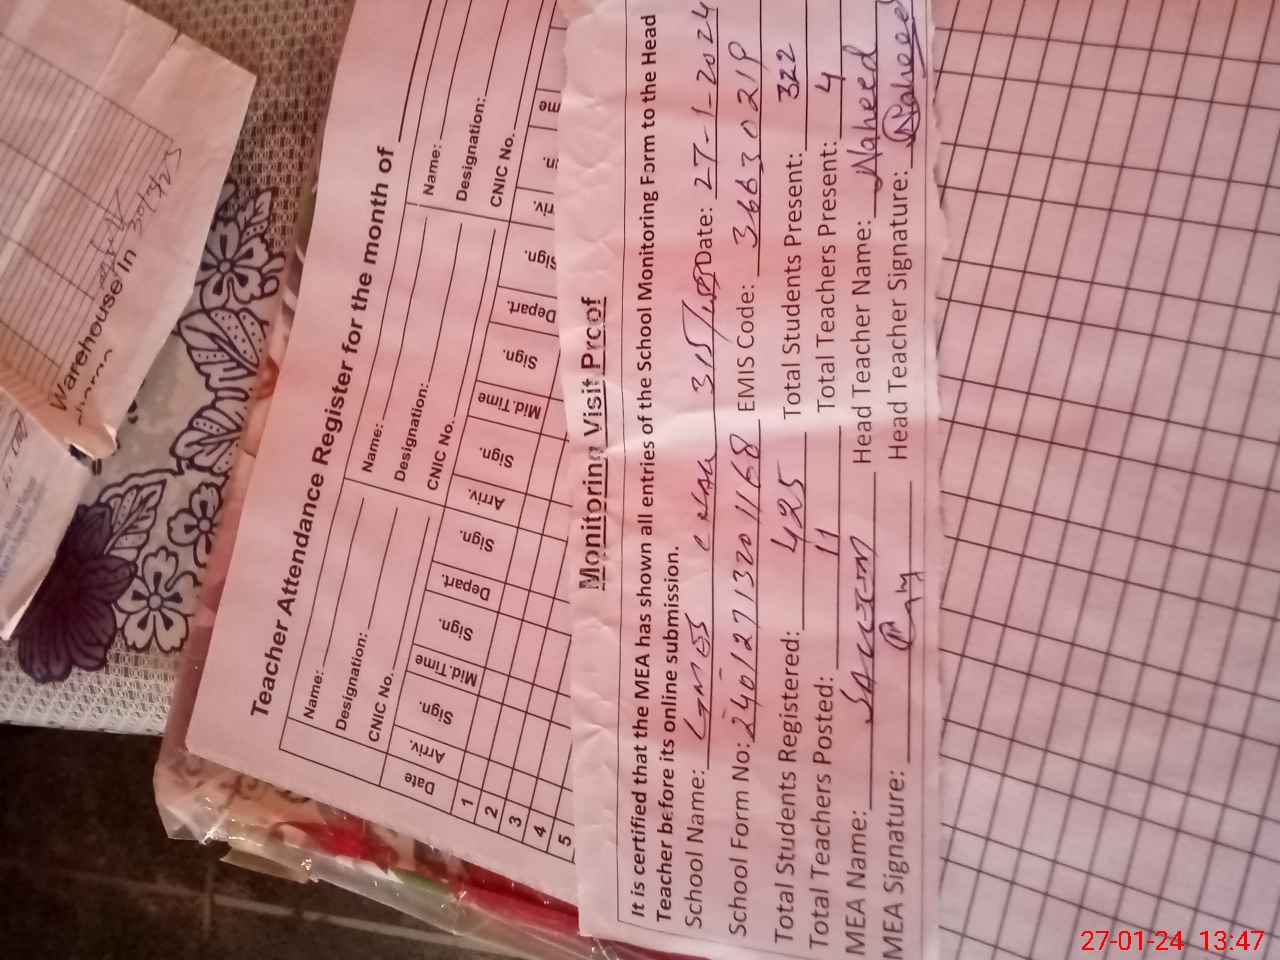 Warehouse In
Teacher Attendance Register for the month of
Name: Name: Name:
Designation: Designation: Designation:
CNIC No. CNIC No. CNIC No.
Date Arriv. Sign. Mid.Time Sign. Depart. Sign. Arriv. Sign. Mid.Time Sign. Depart. Sign.
1
2
3
4
5
Monitoring Visit Proof
It is certified that the MEA has shown all entries of the School Monitoring Form to the Head
Teacher before its online submission.
School Name: Chak 315/ Date: 27-1-2024
School Form No: 24012713201168 EMIS Code: 36630219
Total Students Registered: 425 Total Students Present: 322
Total Teachers Posted: 11 Total Teachers Present: 4
MEA Name: Head Teacher Name: Naheed
MEA Signature: Head Teacher Signature: Naheed
27-01-24 13:47